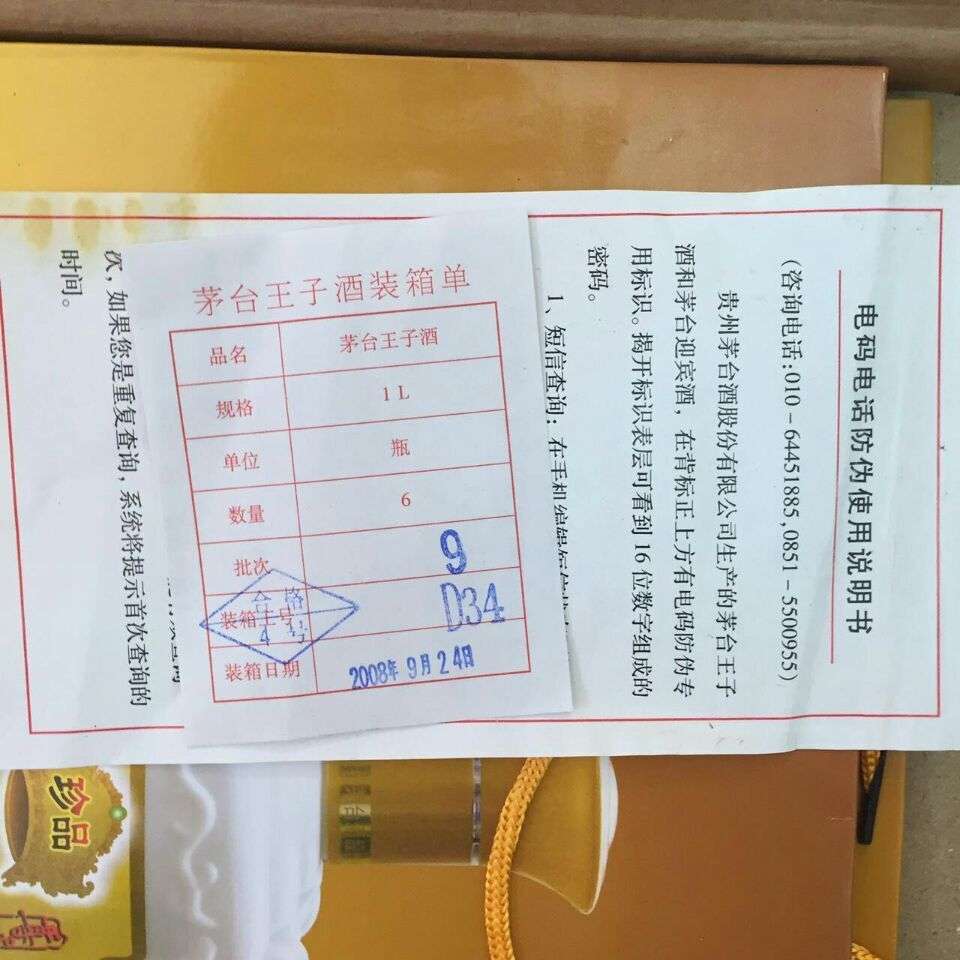 茅台王子酒装箱单
品名 茅台王子酒
规格 1 L
单位 瓶
数量 6
批次 9
装箱工号 D34
合格
装箱日期 2008年9月24日
电码电话防伪使用说明书
(咨询电话:010-64451885,0851-5500955)
贵州茅台酒股份有限公司生产的茅台王子
酒和茅台迎宾酒，在背标正上方有电码防伪专
用标识。揭开标识表层可看到16位数字组成的
密码。
1、短信查询：在手机编辑短信
次，如果您是重复查询，系统将提示首次查询的
时间。
珍品